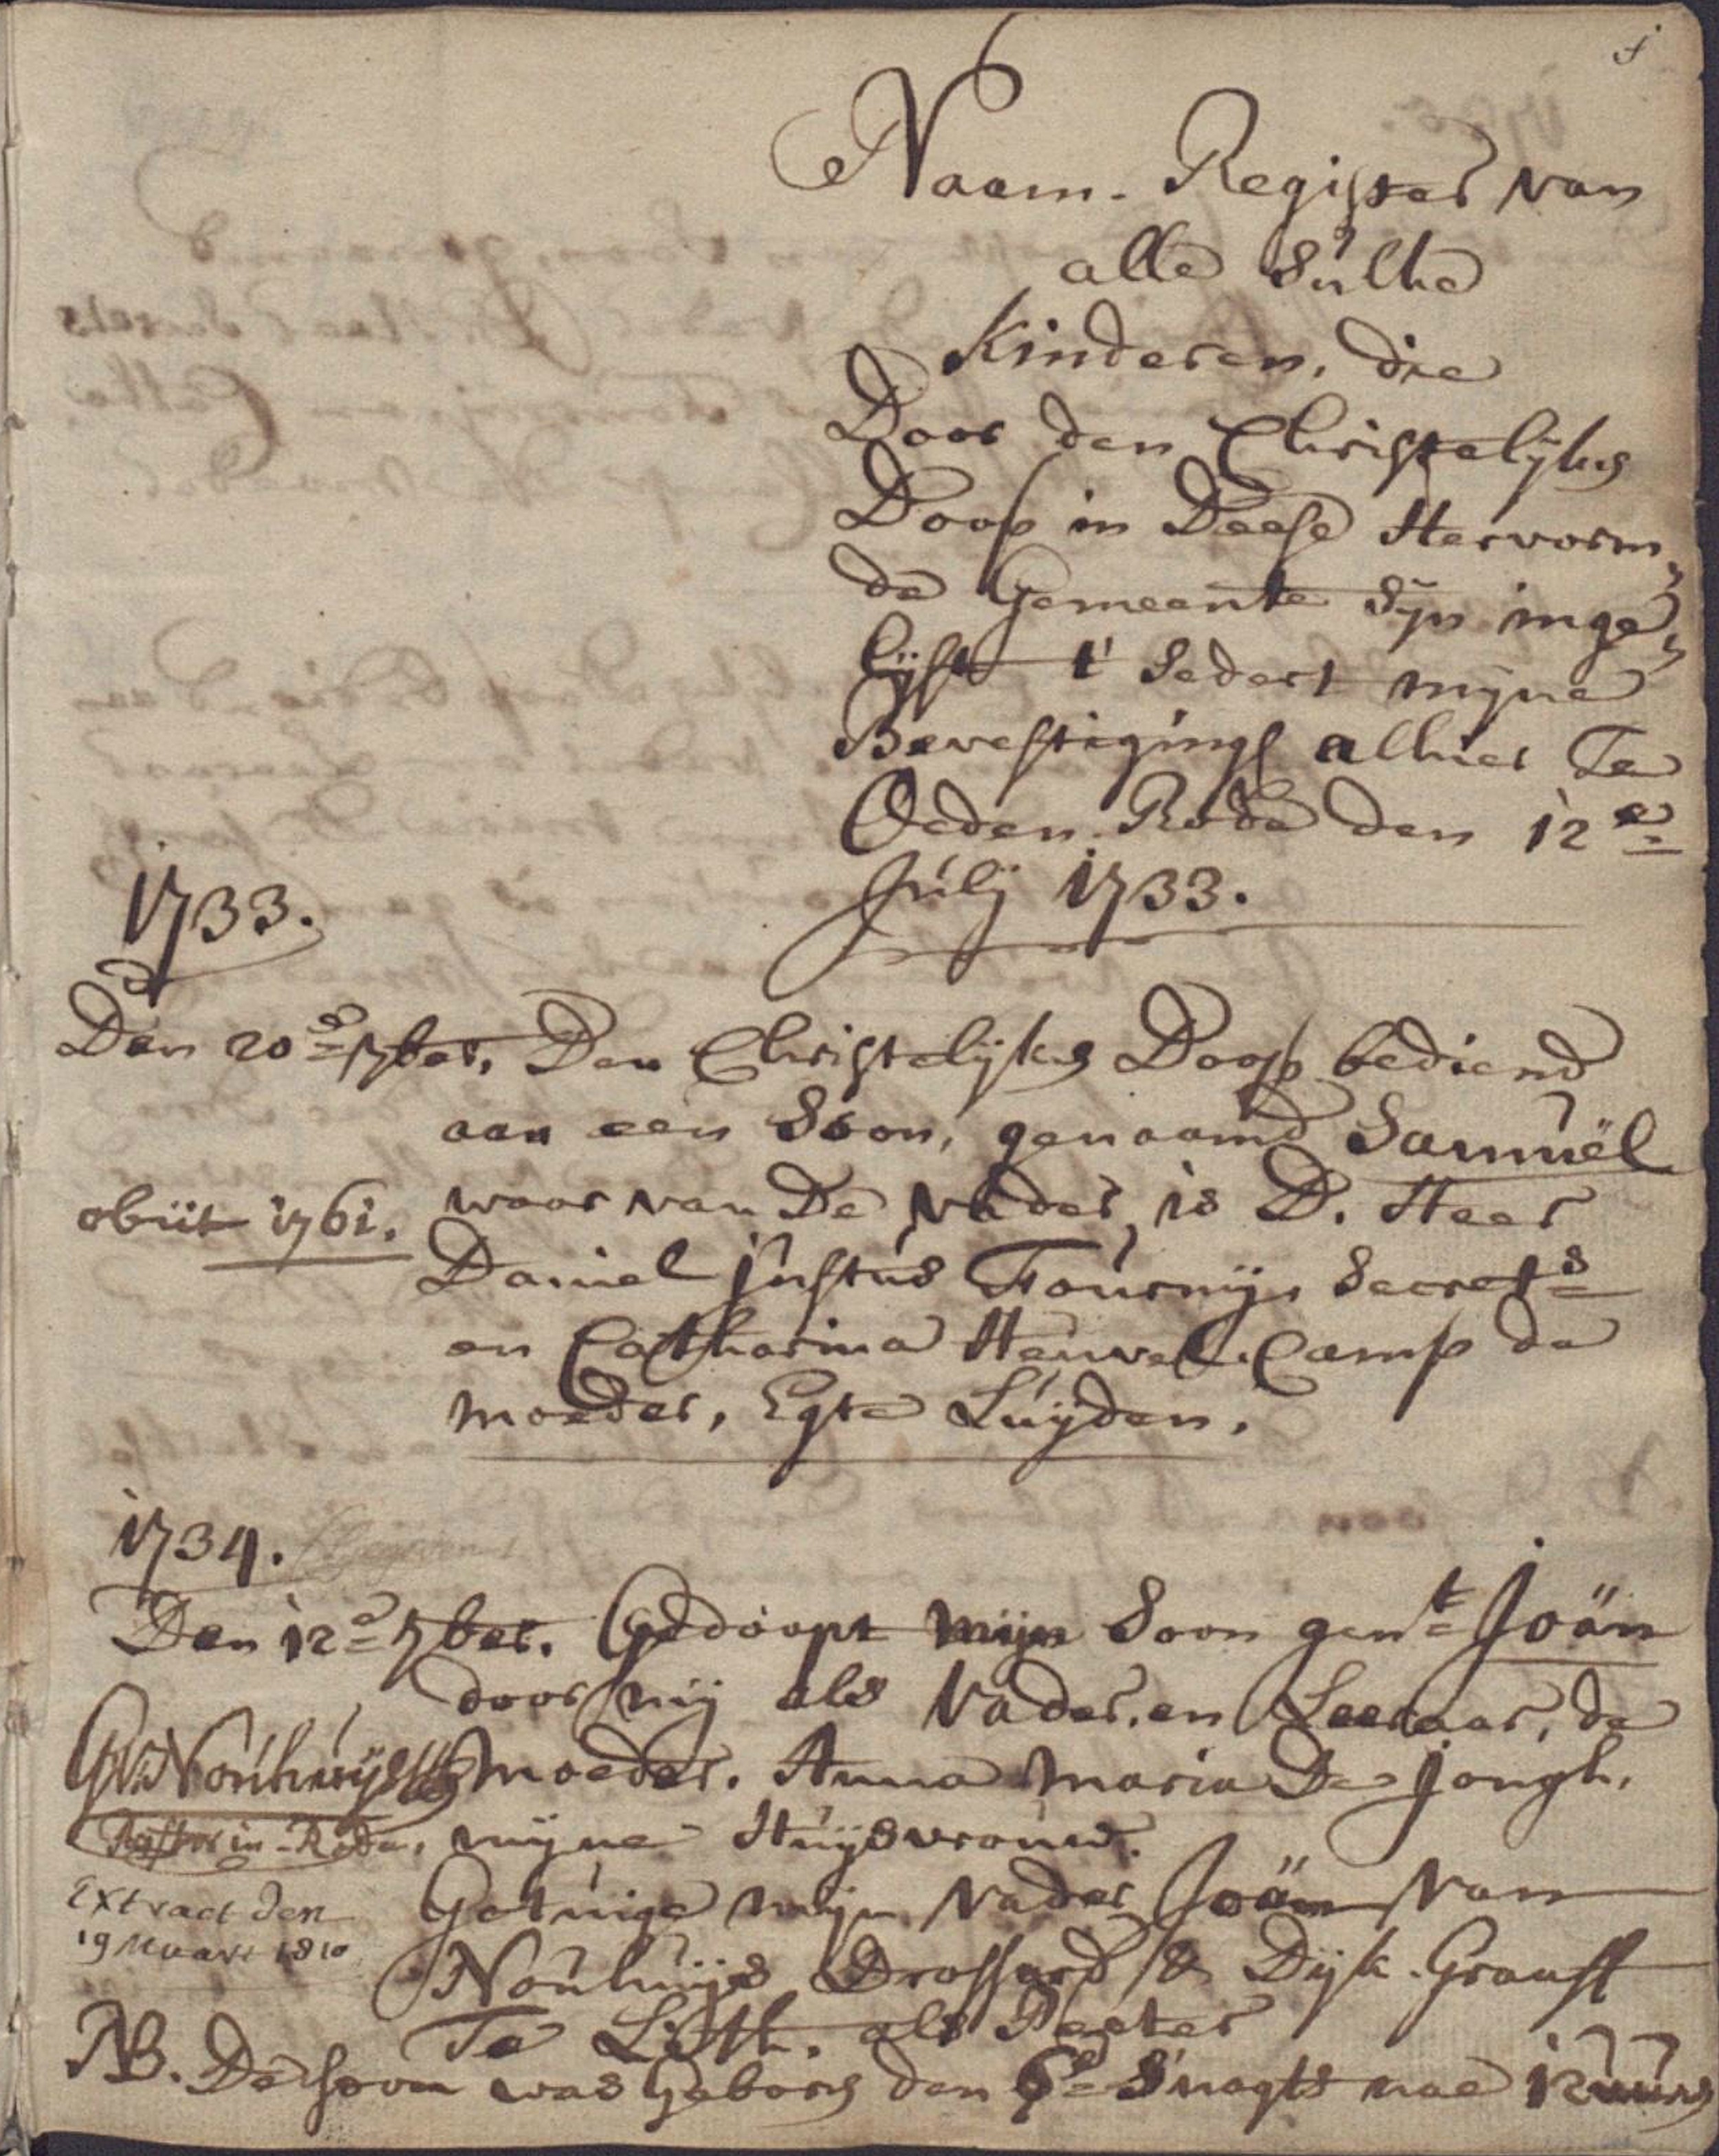 1
Naam-Register van
alle Sulke
Kinderen, die
Door den Christelijken
Doop in Deese Hervorm„
de Gemeente Sijn inge„
lijft t' sedert mijne
Bevestiging alhier Te
Oeden-Rode den 12e
Julij 1733.
1733.
Den 20e 7ber. Den Christelijken Doop bediend
aan een Soon, genaamd Samuël
waar van De vader is D. Heer
obiit 1761.
Daniel Justus Fournij, Secrets
en Catharina Heuvel-Camp de
moeder, Egte Luijden.
1734.
Den 12e 7ber. Gedoopt mijn Soon gent Joän
door mij als Vader, en Leeraar, de
G. V. Nouhuijs
moeder. Anna Maria De Jongh,
Pastor in Rode,
mijne Huijsvrouw.
Extract den
19 Maart 1810
Getuige mijn Vader Joän Van
Nouhuijs Drossard & Dijk-Graaff
Te Lith, als Peeter
NB. De soon was geboren den 6e S'nagts nae 12 uuren